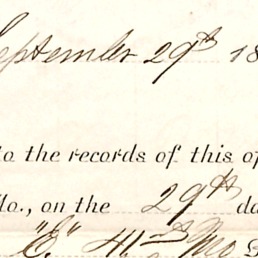 September 29th 18
to the records of this of
Mo., on the 29th da
"E" 41st Mo